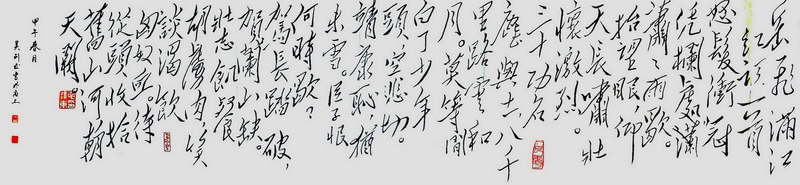 岳飛滿江
紅詞一首
怒髮衝冠
凭欄處瀟
瀟雨歇。
抬望眼仰
天長嘯壯
懷激烈。
三十功名
塵與土八千
里路雲和
月。莫等閒
白了少年
頭空悲切。
靖康恥,猶
未雪。臣子恨
何時歇?
駕長踏破,
賀蘭山缺。
壯志飢餐
胡虜肉笑
談渴飲
匈奴血。待
從頭收拾
舊山河朝
天闕。
甲午春月